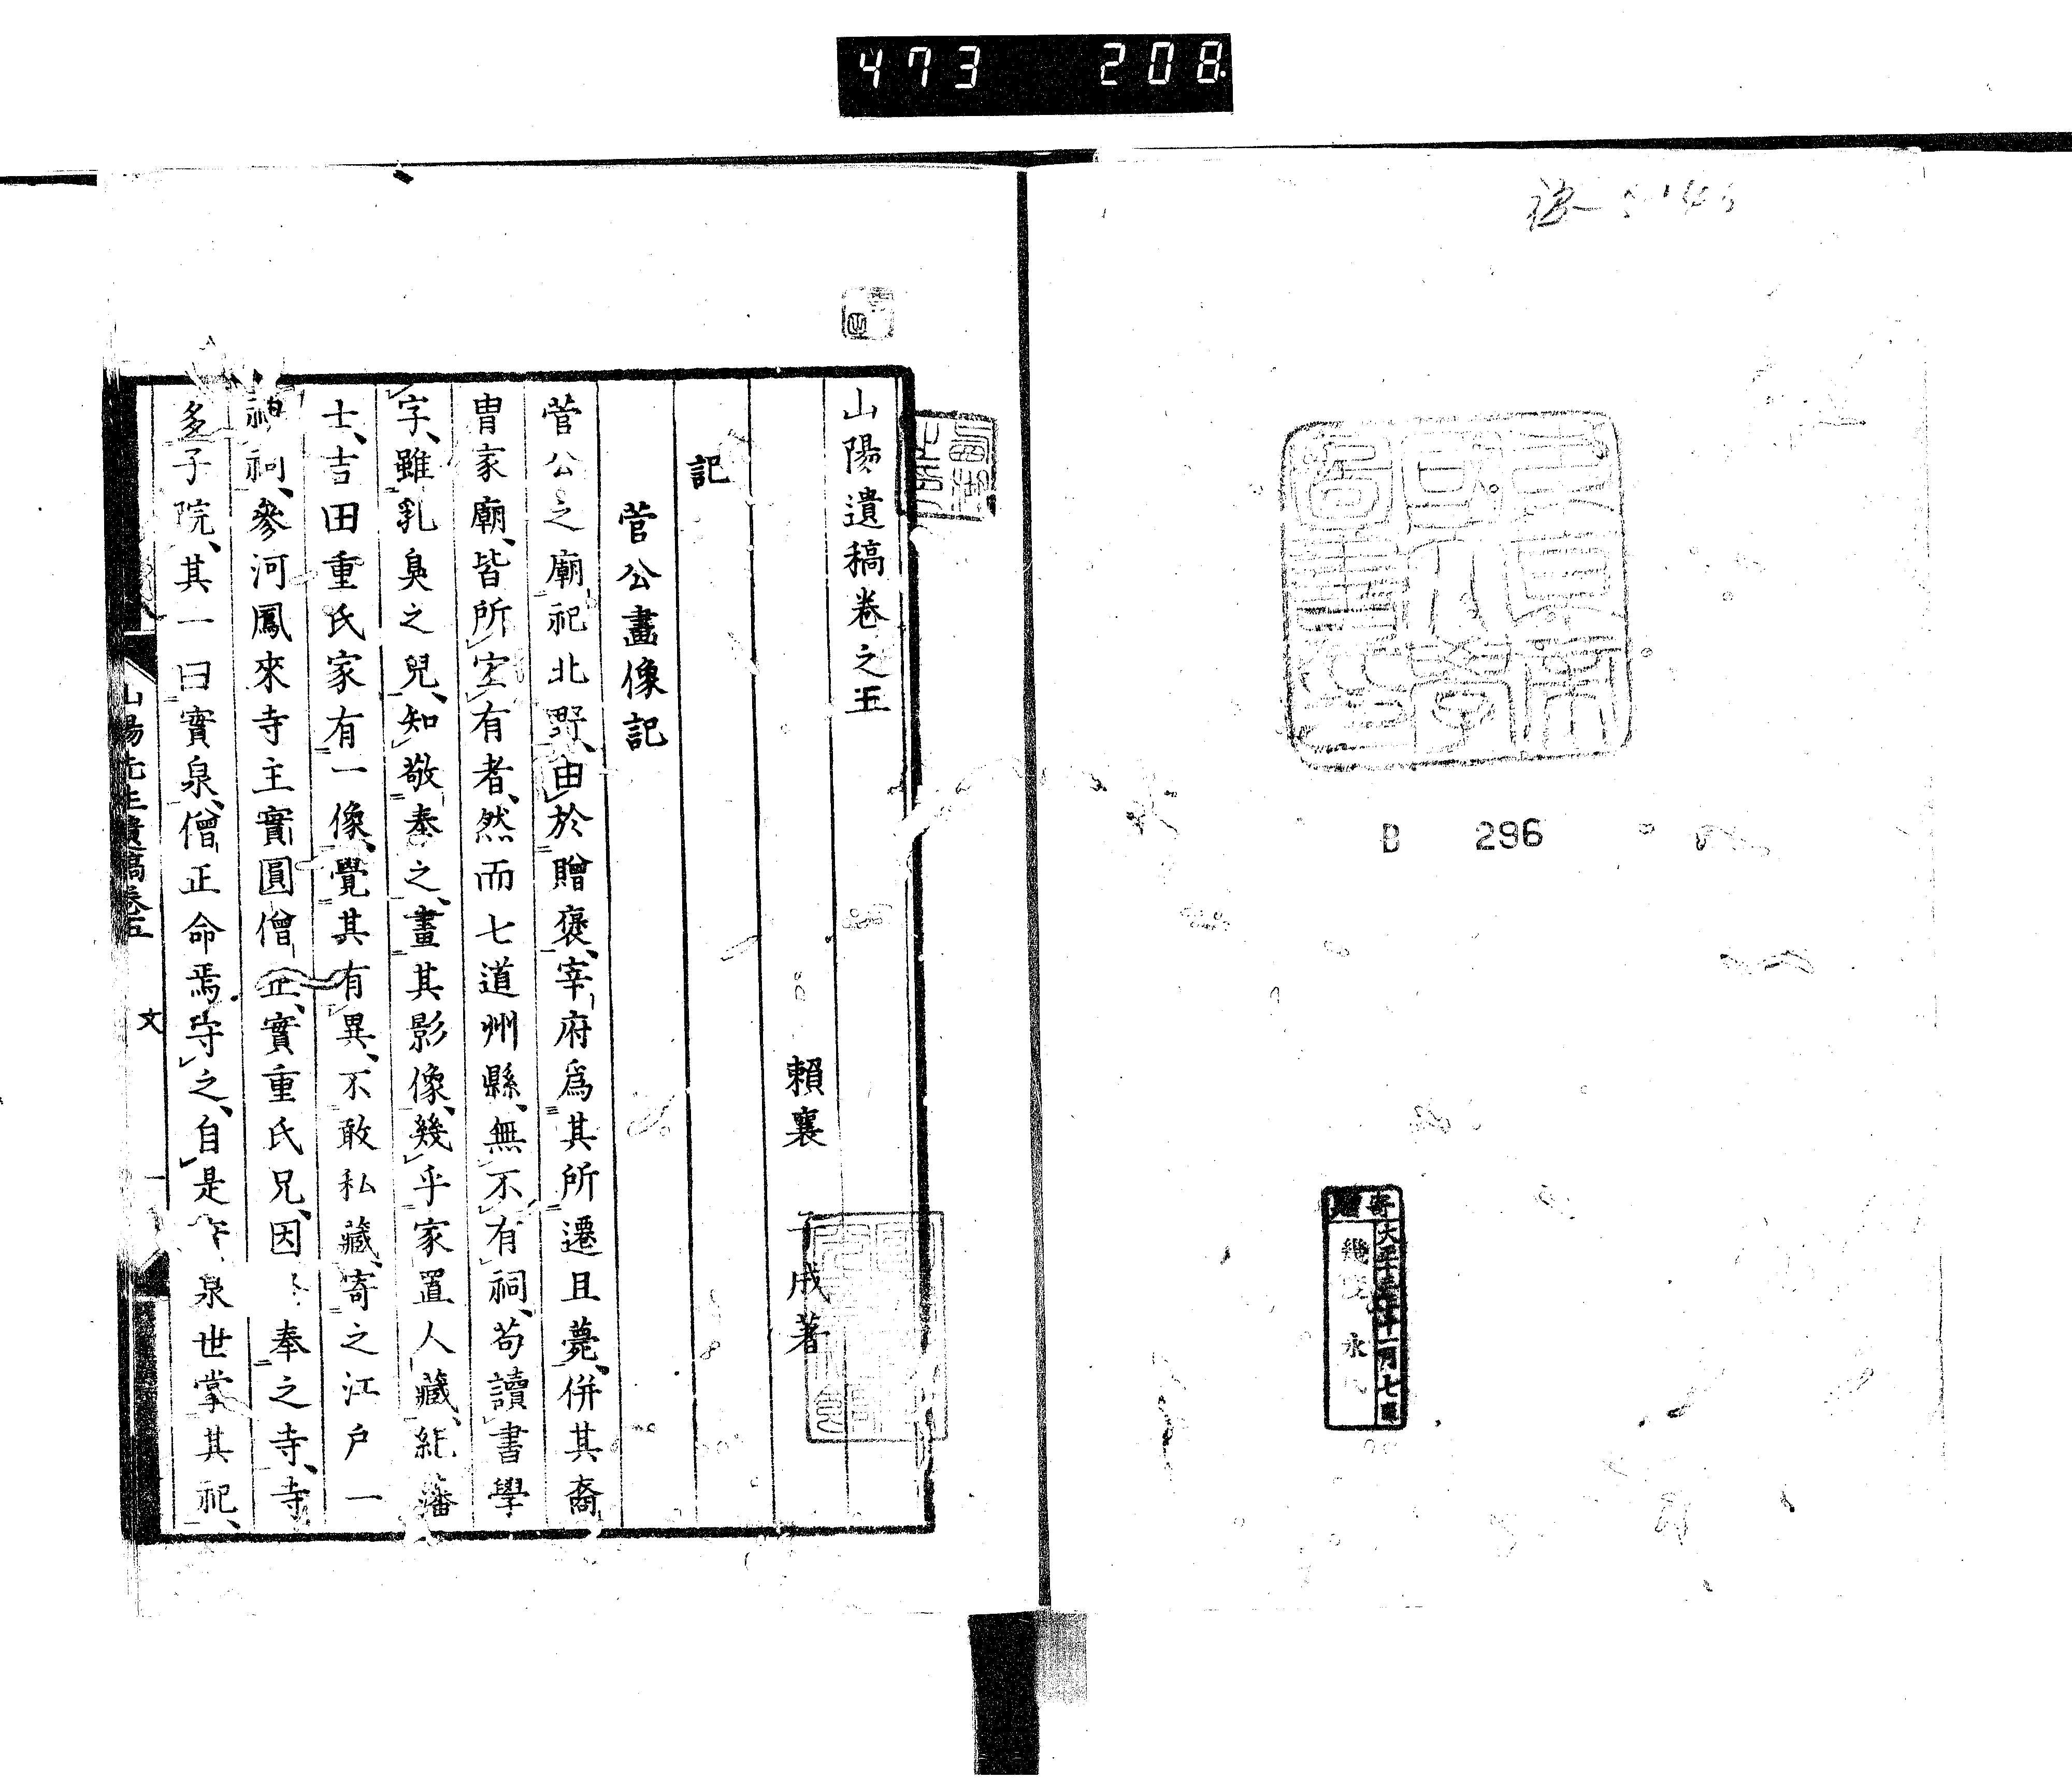 473 208
D 296
大正十三年十一月七日
山陽遺稿卷之五
賴襄 子成著
記
菅公畫像記
菅公之廟祀北野、由於贈褒、宰府爲其所遷且薨、併其裔
冑家廟、皆所宜有者、然而七道州縣、無不有祠、苟讀書學
字、雖乳臭之兒、知敬奉之、畫其影像、幾乎家置人藏、紀藩
士、吉田重氏家有一像、覺其有異、不敢私藏、寄之江戶一
神祠、參河鳳來寺主實圓僧正、實重氏兄、因 奉之寺、寺
多子院、其一曰實泉、僧正命焉守之、自是 泉世掌其祀、
山陽先生遺稿卷五 文 一